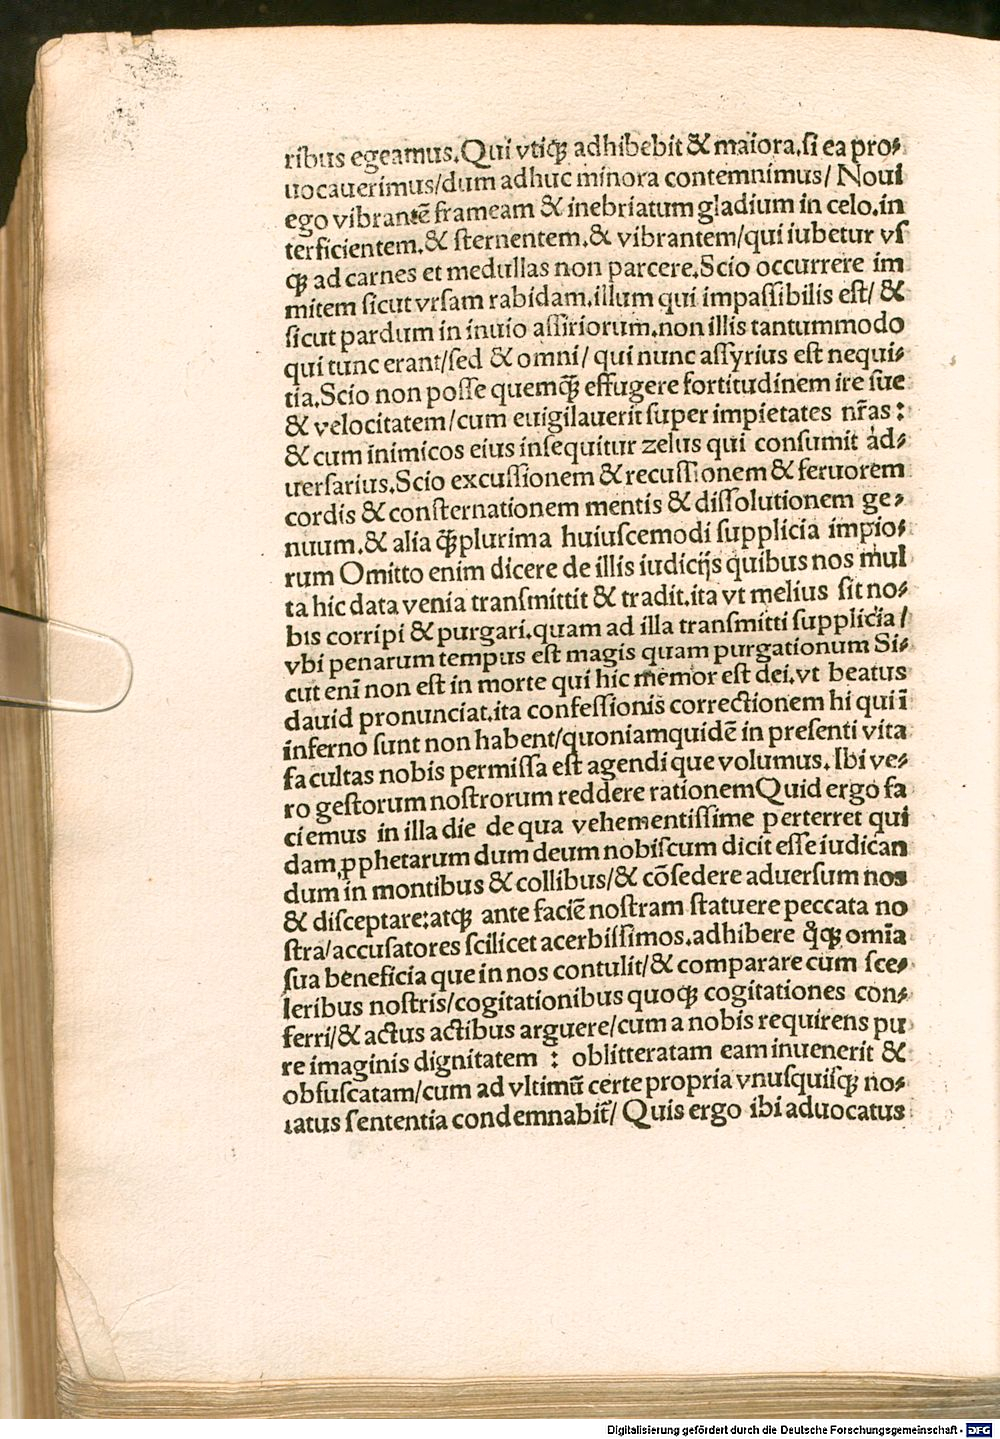 ribus egeamus.Qui vtiqꝫ adhibebit & maiora.ſi ea pro⸗
uocauerimus/dum adhuc minora contemnimus/ Noui
ego vibrantē frameam & inebriatum gladium in celo.in
terficientem.& ſternentem.& vibrantem/qui iubetur vſ
qꝫ ad carnes et medullas non parcere.Scio occurrere im
mitem ſicut vrſam rabidam.illum qui impaſſibilis eſt/ &
ſicut pardum in inuio aſſiriorum.non illis tantummodo
qui tunc erant/ſed & omni/ qui nunc aſſyrius eſt nequi⸗
tia.Scio non poſſe quemqꝫ̄ effugere fortitudinem ire ſue
& velocitatem/cum euigilauerit ſuper impietates nr̄as :
& cum inimicos eius inſequitur zelus qui conſumit ad⸗
uerſarius.Scio excuſſionem & recuſſionem & feruorem
cordis & conſternationem mentis & diſſolutionem ge⸗
nuum.& alia qꝫ̄plurima huiuſcemodi ſupplicia impio⸗
rum Omitto enim dicere de illis iudicijs quibus nos mul
ta hic data venia tranſmittit & tradit.ita vt melius ſit no⸗
bis corripi & purgari.quam ad illa tranſmitti ſupplicia/
vbi penarum tempus eſt magis quam purgationum Si⸗
cut eni̅ non eſt in morte qui hic memor eſt dei.vt beatus
dauid pronunciat.ita confeſſionis correctionem hi qui ī
inferno ſunt non habent/quoniamquidē in preſenti vita
facultas nobis permiſſa eſt agendi que volumus. Ibi ve⸗
ro geſtorum noſtrorum reddere rationemQuid ergo fa
ciemus in illa die de qua vehementiſſime perterret qui
dam ꝓphetarum dum deum nobiſcum dicit eſſe iudican
dum in montibus & collibus/& cōſedere aduerſum nos
& diſceptare:atqꝫ ante faciē noſtram ſtatuere peccata no
ſtra/accuſatores ſcilicet acerbiſſimos.adhibere q̊qꝫ omīa
ſua beneficia que in nos contulit/& comparare cum ſce⸗
leribus noſtris/cogitationibus quoqꝫ cogitationes con⸗
ferri/& actus actibus arguere/cum a nobis requirens pu
re imaginis dignitatem : oblitteratam eam inuenerit &
obfuſcatam/cum ad vltimū certe propria vnuſquiſqꝫ no⸗
ıatus ſententia condemnabit̄/ Quis ergo ibi aduocatus
Digitalisierung gefördert durch die Deutsche Forschungsgemeinschaft - DFG